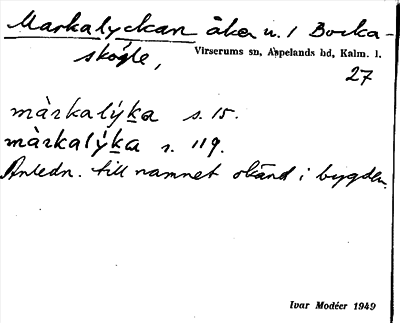 Markalyckan åker u. 1 Bocka-
skögle, Virserums sn, Aspelands hd, Kalm. l.
27
màrkalýka s. 15.
màrkalýka s. 119.
Anledn. till namnet okänd i bygden.
Ivar Modéer 1949